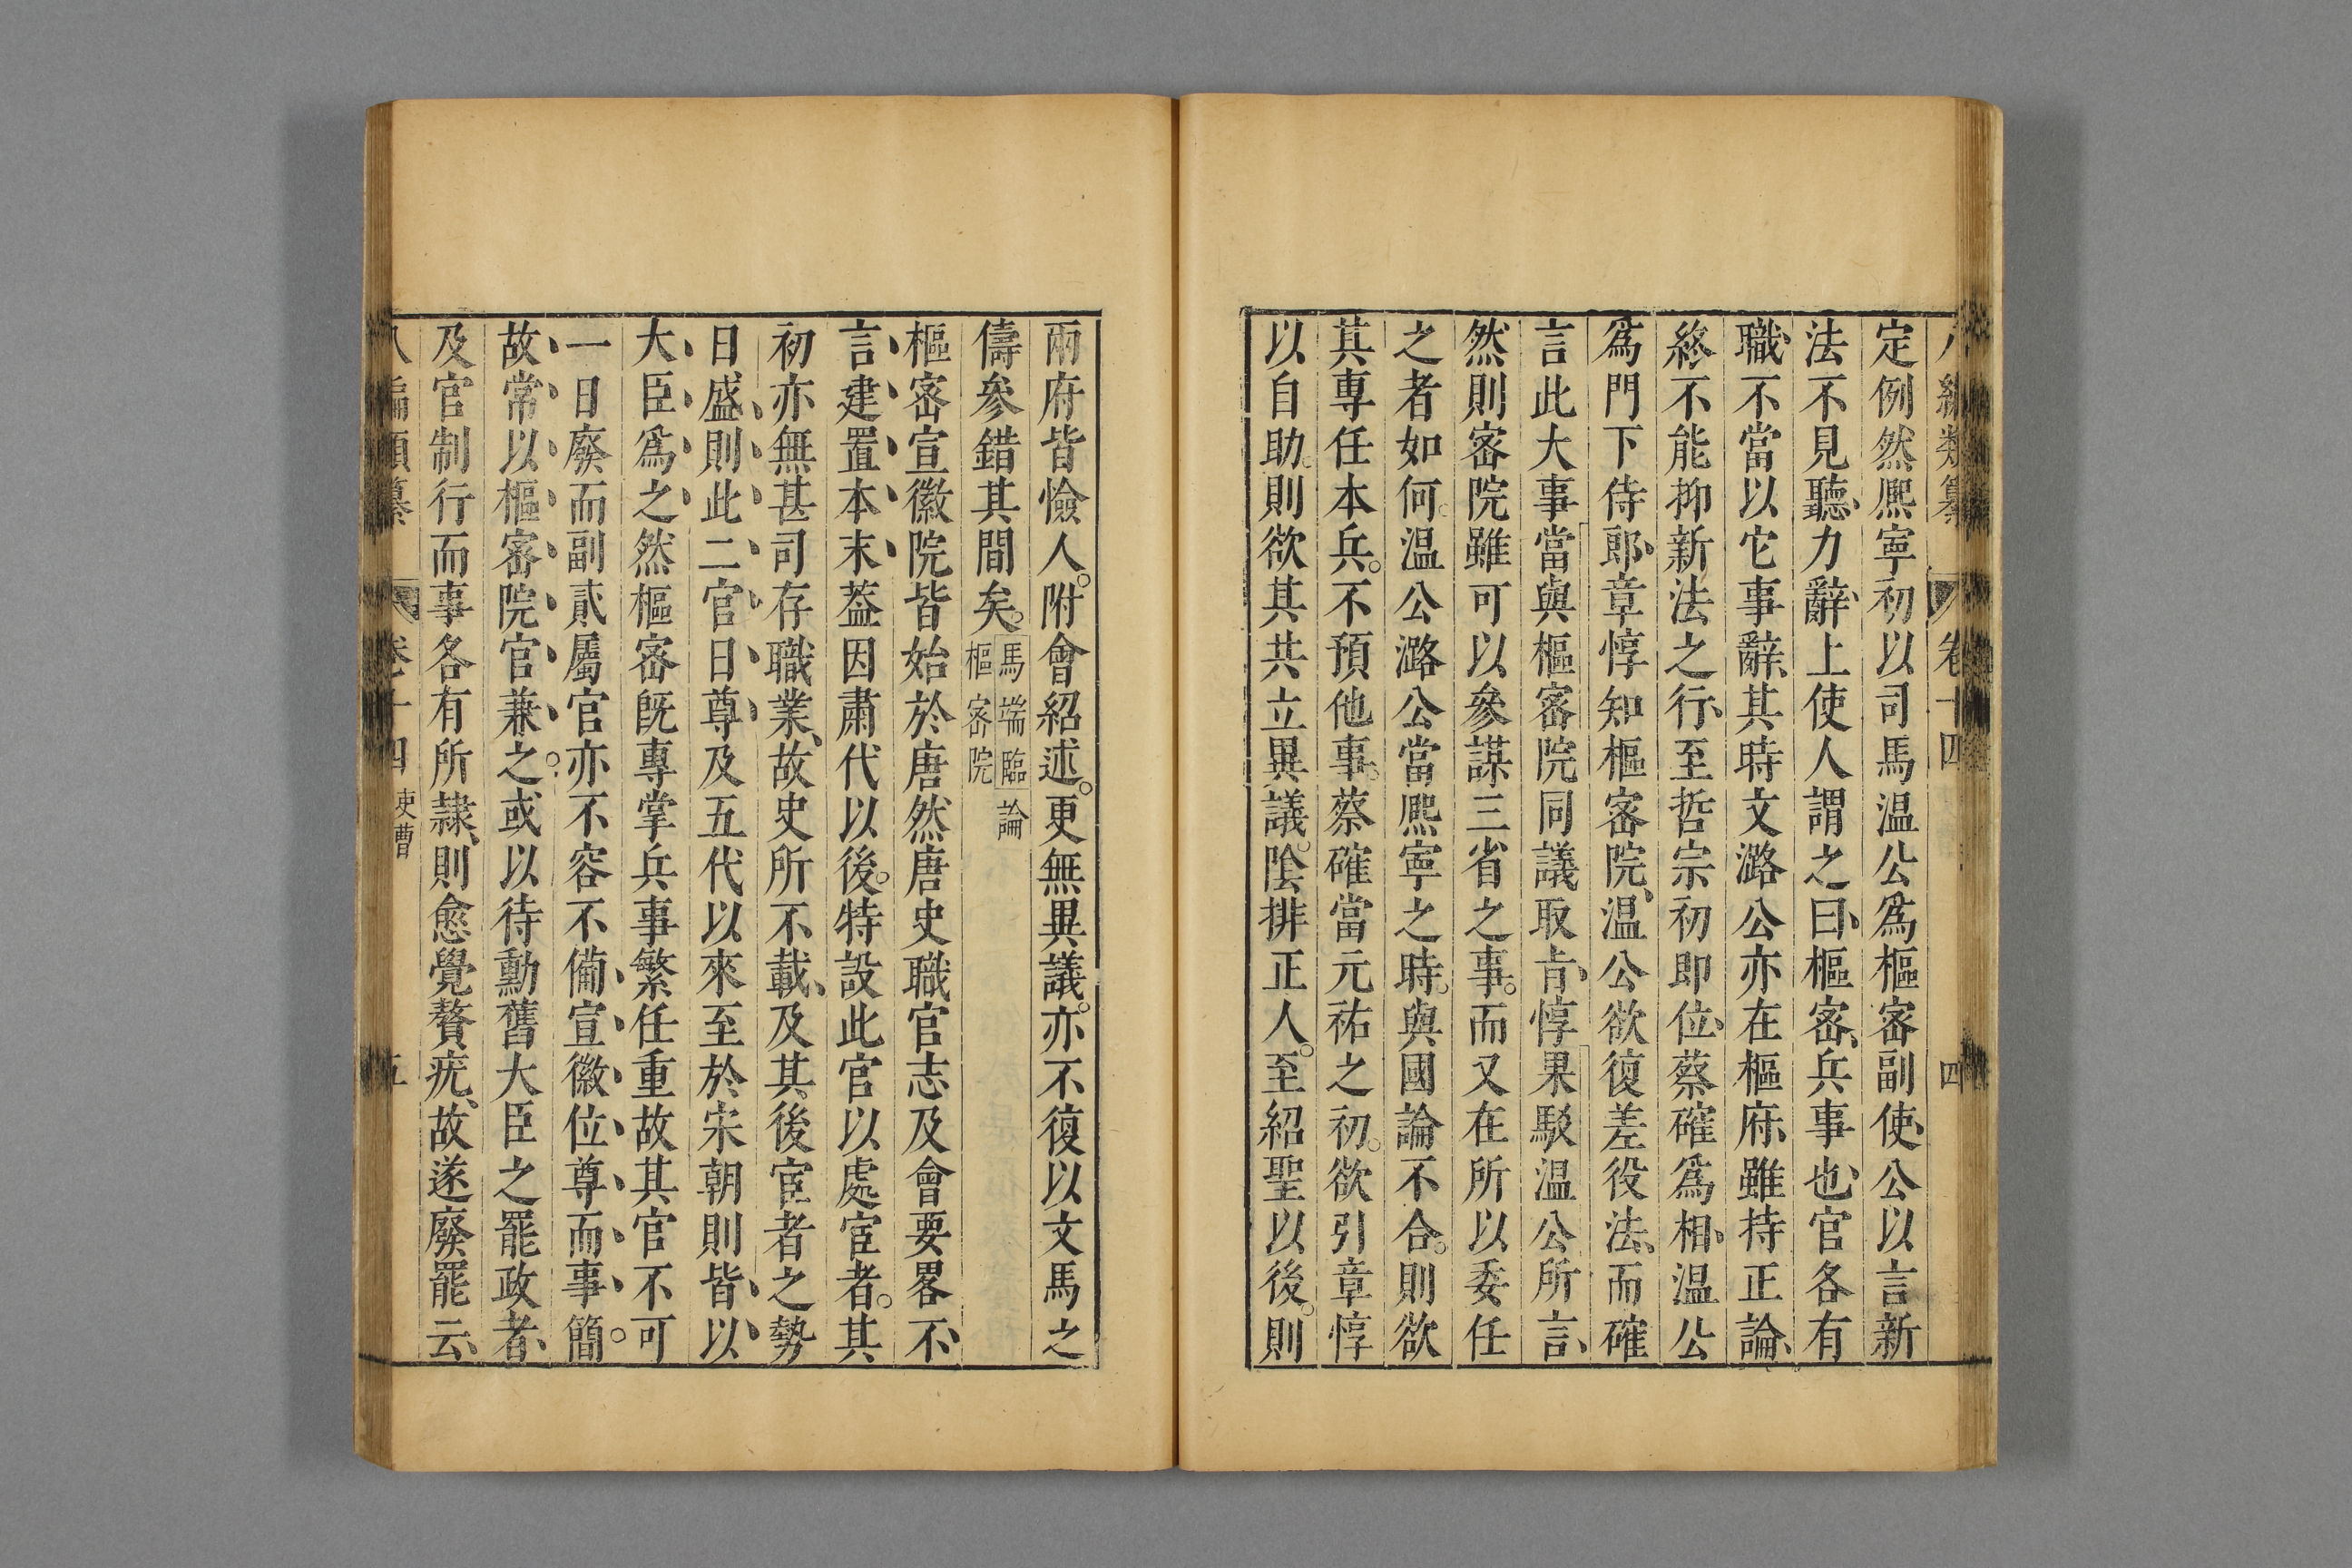 編類纂 卷十四 四
定例然熈寧初以司馬温公爲樞宻副使公以言新
法不見聽力辭上使人謂之曰樞宻兵事也官各有
職不當以它事辭其時文潞公亦在樞府雖持正論
終不能抑新法之行至哲宗初即位蔡確爲相温公
爲門下侍郎章惇知樞宻院温公欲復差役法而確
言此大事當與樞宻院同議取旨惇果駁温公所言
然則宻院雖可以參謀三省之事而又在所以委任
之者如何温公潞公當熈寧之時與國論不合則欲
其專任本兵不預他事蔡確當元祐之初欲引章惇
以自助則欲其共立異議陰排正人至紹聖以後則
兩府皆憸人附會紹述更無異議亦不復以文馬之
儔參錯其間矣馬端臨論樞宻院
樞宻宣徽院皆始於唐然唐史職官志及會要畧不
言建置本末葢因肅代以後特設此官以處宦者其
初亦無甚司存職業故史所不載及其後宦者之勢
日盛則此二官日尊及五代以來至於宋朝則皆以
大臣爲之然樞宻旣專掌兵事繁任重故其官不可
一日廢而副貳屬官亦不容不備宣徽位尊而事簡
故常以樞宻院官兼之或以待勳舊大臣之罷政者
及官制行而事各有所隷則愈覺贅疣故遂廢罷云
八編類纂 卷十四 吏曹 五